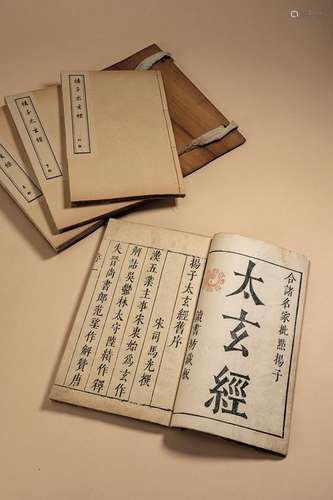 合諸名家批點揚子
太玄經
讀書坊藏板
揚子太玄經舊序
宋司馬光撰
漢五業主事宋衷始爲玄作
解詁吳鬱林太守陸績作釋
失晉尚書郎范望作解贊唐
揚子太玄經
揚子太玄經